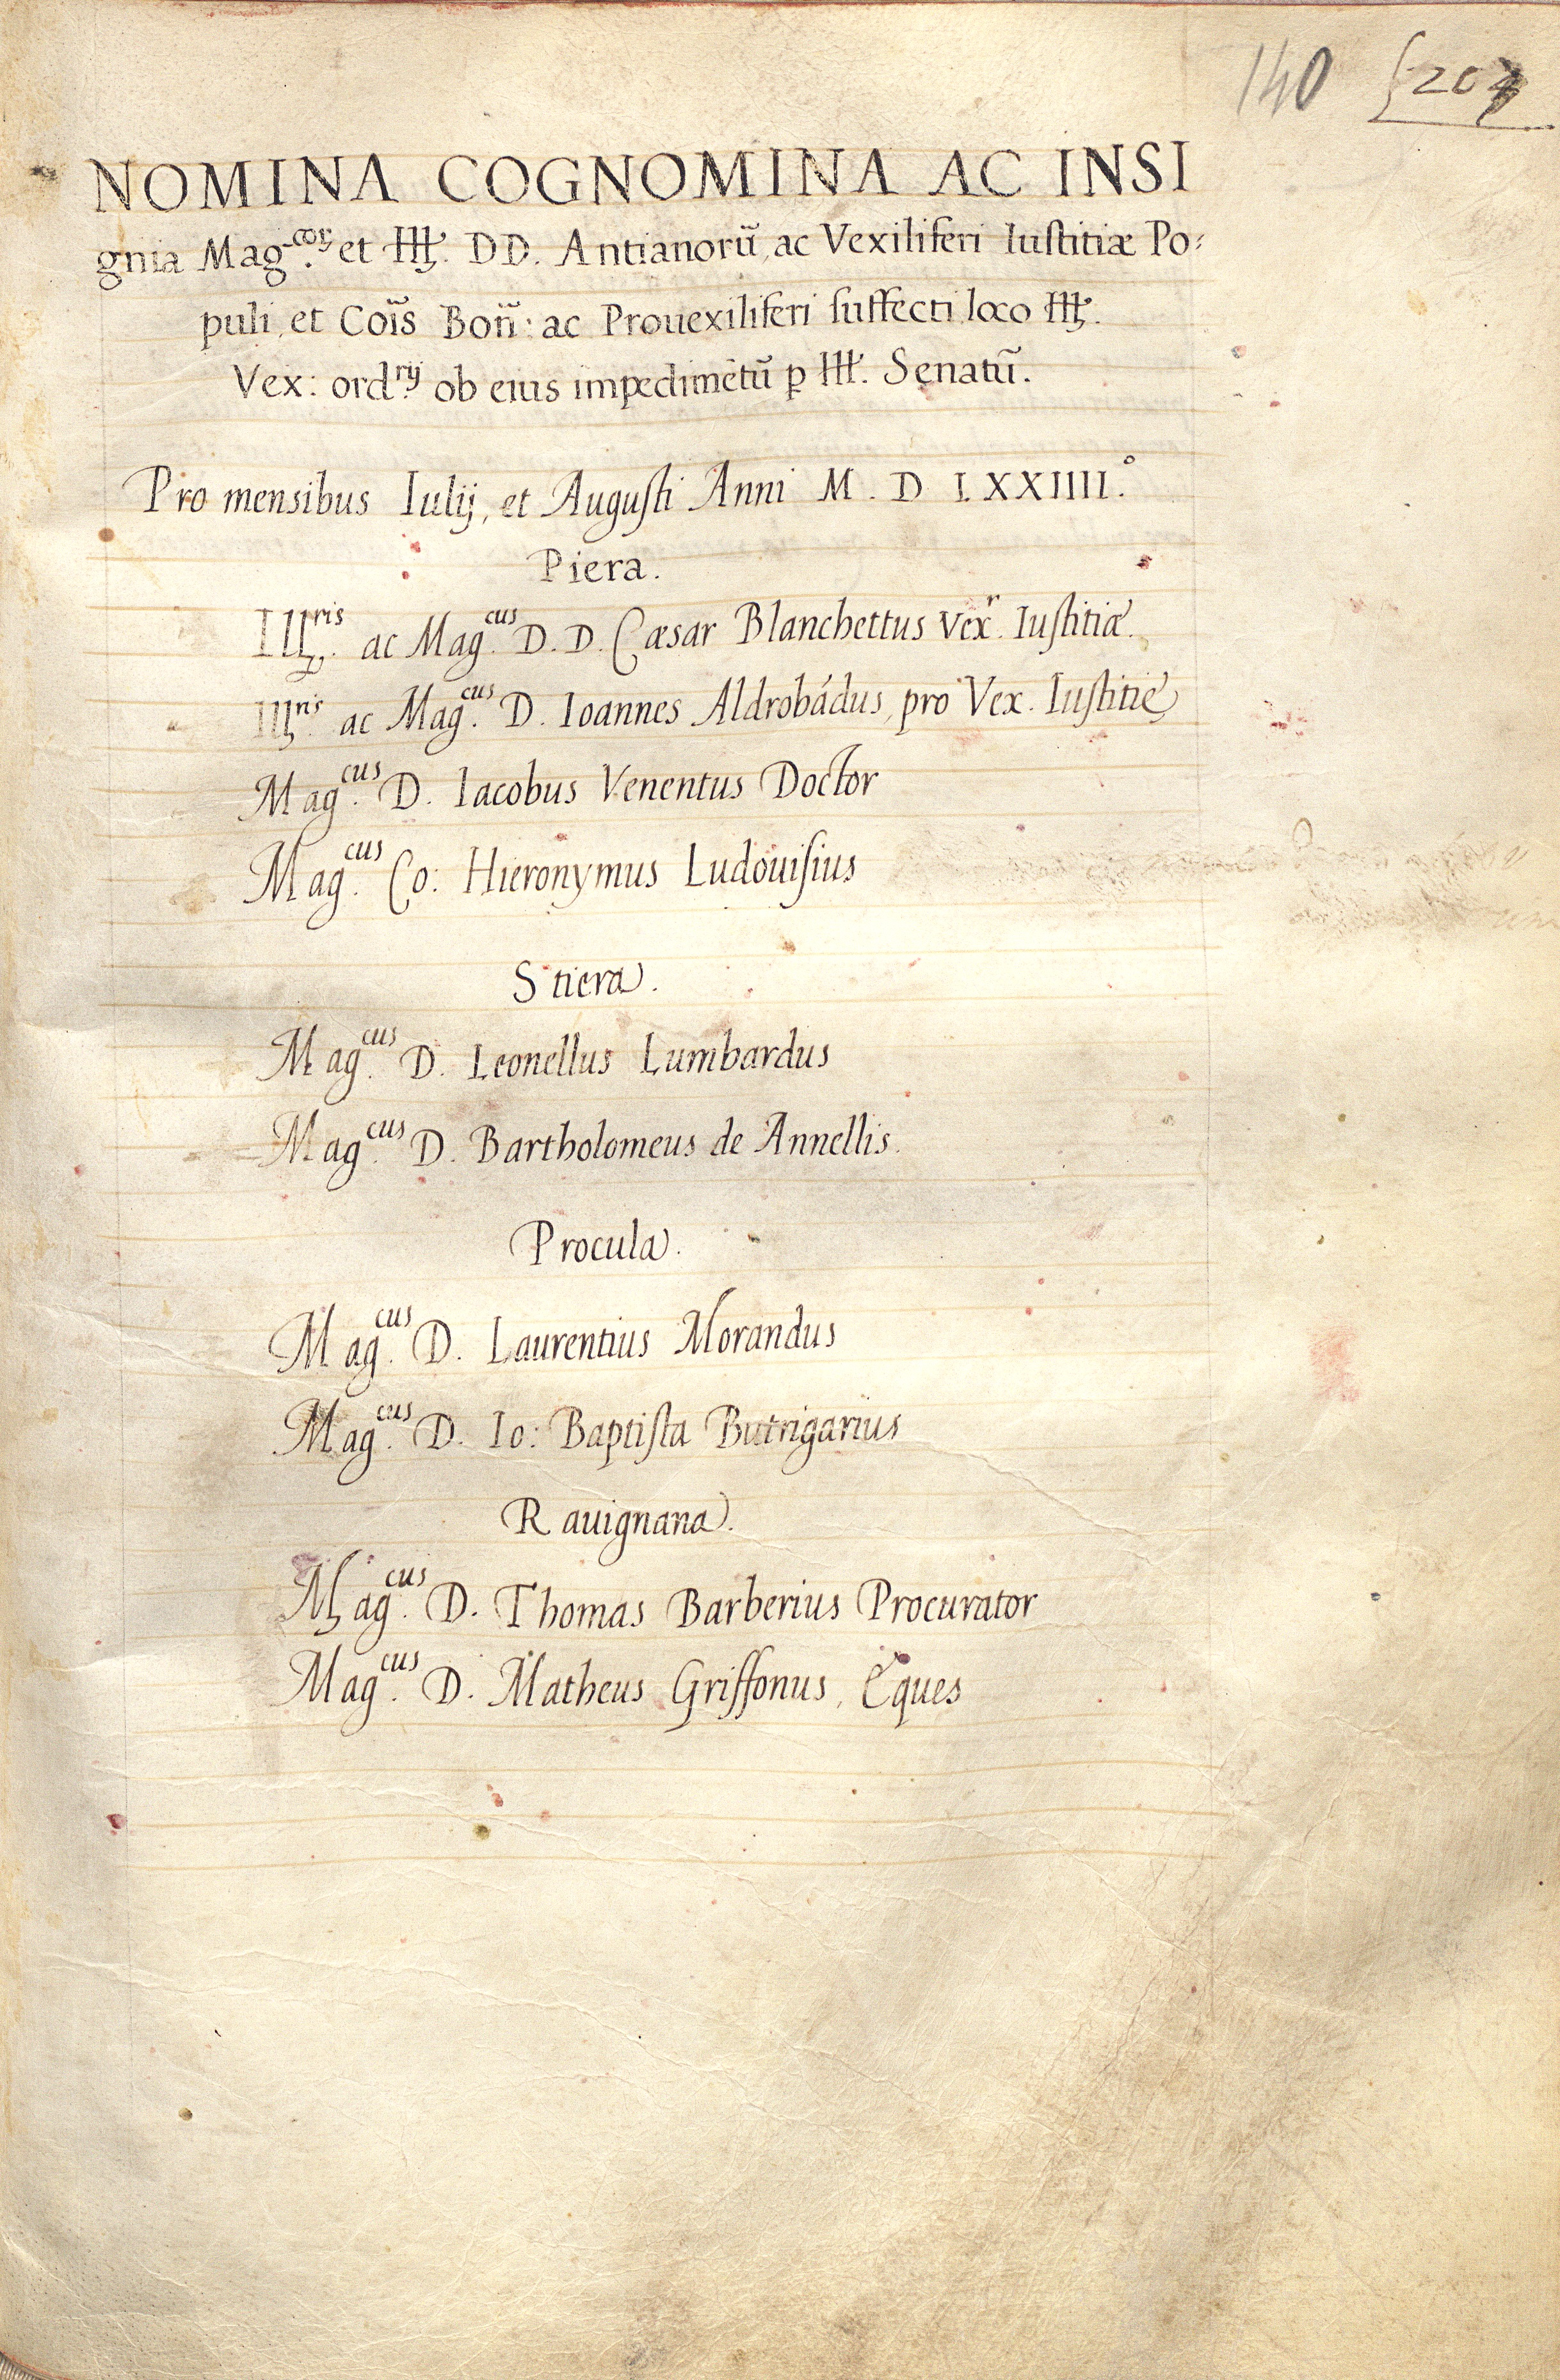 140 207
NOMINA COGNOMINA AC INSI
gnia Mag.corꝝ et Ill. DD. Antianorũ, ac Vexiliferi Iustitiæ Po:
puli, et Cõis Boñ: ac Prouexiliferi suffecti loco Ill.
Vex: ord.rij ob eius impedimẽtũ ꝑ Ill. Senatũ.
Pro mensibus Iulij, et Augusti Anni M. D LXXIIII.°
Piera.
Ill.ris ac Mag.cus D. D. Cæsar Blanchettus Vex.r Iustitiæ.
Ill.ris ac Mag.cus D. Ioannes Aldrobãdus, pro Vex. Iustitię
Mag.cus D. Iacobus Venentus Doctor
Mag.cus Co: Hieronymus Ludouisius
Stiera.
Mag.cus D. Leonellus Lumbardus
Mag.cus D. Bartholomeus de Annellis.
Procula.
Mag.cus D. Laurentius Morandus
Mag.cus D. Io: Baptista Butrigarius
Rauignana.
Mag.cus D. Thomas Barberius Procurator
Mag.cus D. Matheus Griffonus, Eques